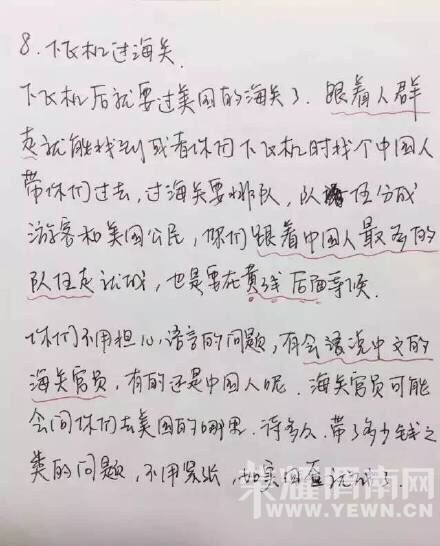 8. 下飞机过海关.
下飞机后就要过美国的海关了. 跟着人群
走就能找到或者你们下飞机时找个中国人
带你们过去, 过海关要排队, 队伍分成
游客和美国公民, 你们跟着中国人最多的
队伍走就成, 也是要在黄线后面等候.
你们不用担心语言的问题, 有会说中文的
海关官员, 有的还是中国人呢. 海关官员可能
会问你们去美国的哪里. 待多久. 带了多少钱之
类的问题, 不用紧张, 如实回答就成了.
荣耀渭南网
WWW.YEWN.CN